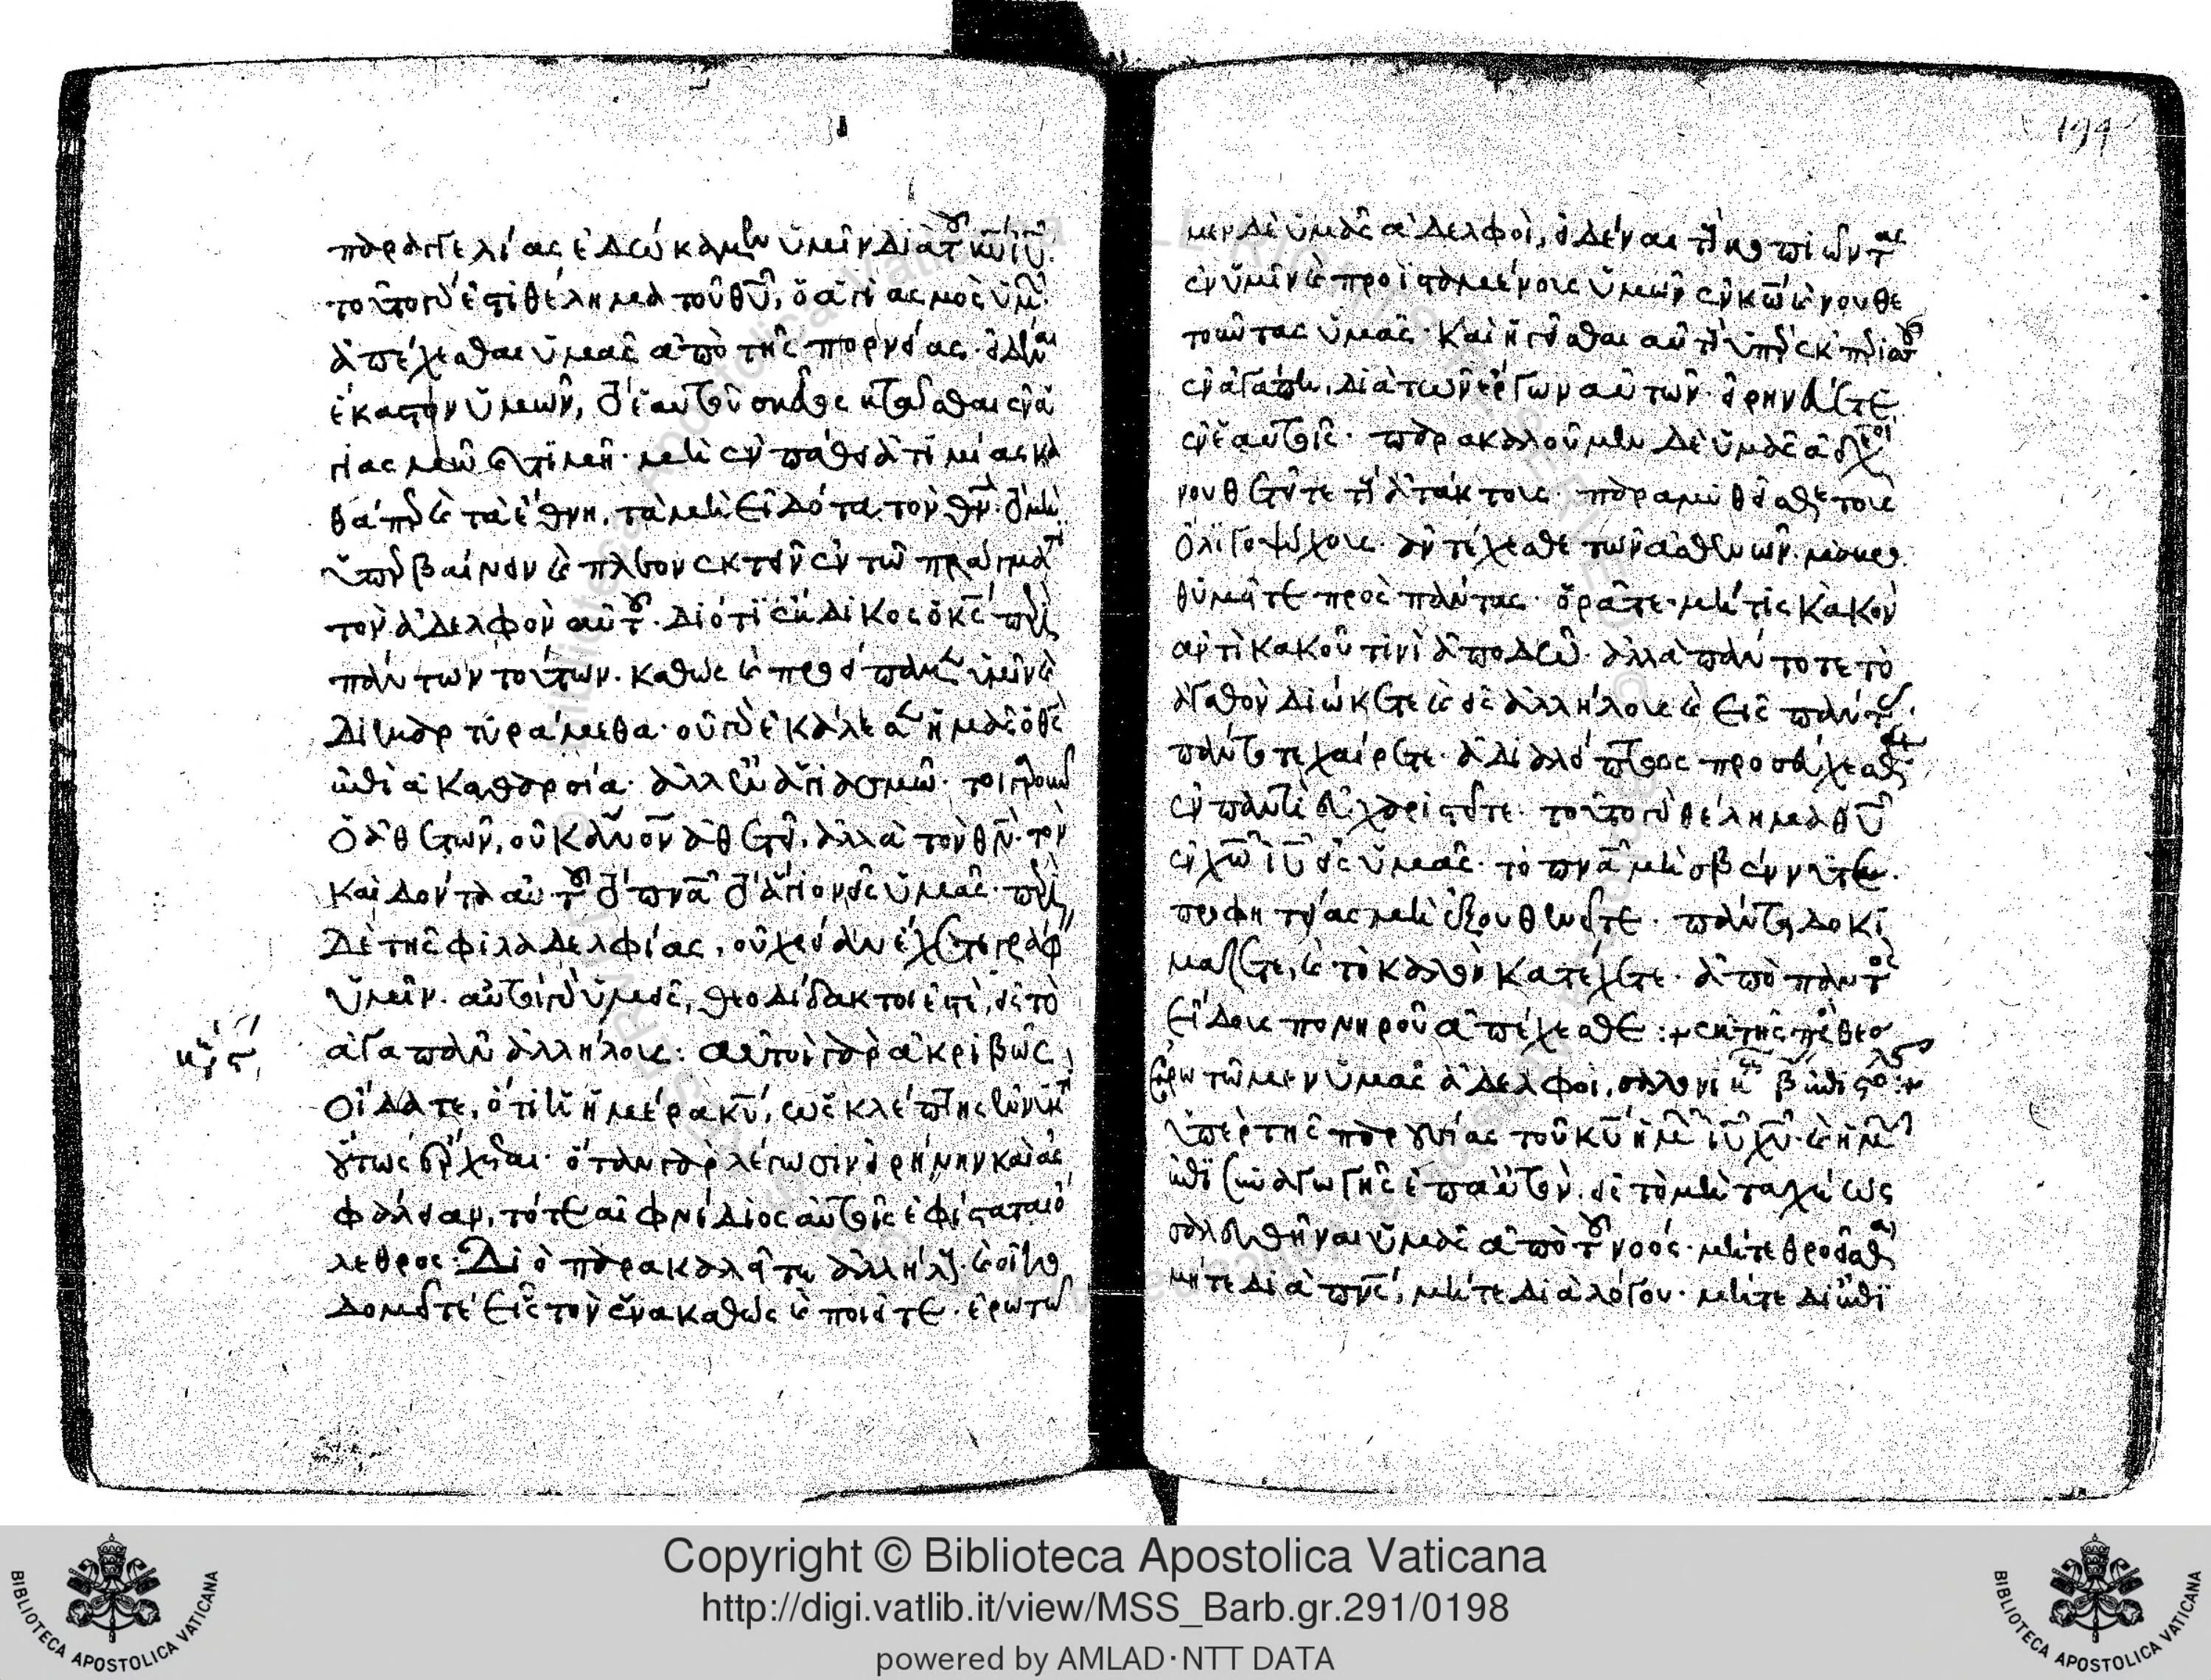 παραγγελίας ἐδώκαμεν ὑμῖν διὰ τοῦ κυ ιυ.
τοῦτο γάρ ἐστι θέλημα τοῦ θυ, ὁ ἁγιασμὸς ὑμῶν.
ἀπέχεσθαι ὑμᾶς ἀπὸ τῆς πορνείας. εἰδέναι
ἕκαστον ὑμῶν, τὸ ἑαυτοῦ σκεῦος κτᾶσθαι ἐν ἁ
γιασμῶ καὶ τιμῆ. μὴ ἐν πάθει ἀτιμίας κα
θάπερ καὶ τὰ ἔθνη, τὰ μὴ εἰδότα τὸν θν. τὸ μὴ
ὑπερβαίνειν καὶ πλεονεκτεῖν ἐν τῶ πράγματι
τὸν ἀδελφὸν αὐτοῦ. διότι ἔκδικος ὁ κς περὶ
πάντων τούτων. καθὼς καὶ προείπαμεν ὑμῖν καὶ
διεμαρτυράμεθα. οὐ γὰρ ἐκάλεσεν ἡμᾶς ὁ θς
ἐπὶ ἀκαθαρσία. ἀλλ' ἐν ἁγιασμῶ. τοιγαροῦν
ὁ ἀθετῶν, οὐκ ἀνον ἀθετεῖ, ἀλλὰ τὸν θν. τὸν
καὶ δόντα αὐτοῦ τὸ πνα τὸ ἅγιον εἰς ὑμᾶς. περὶ
δὲ τῆς φιλαδελφίας, οὐ χρείαν ἔχετε γράφειν
ὑμῖν. αὐτοὶ γὰρ ὑμεῖς, θεοδίδακτοί ἐστε, εἰς τὸ
ἀγαπᾶν ἀλλήλους: αὐτοὶ γὰρ ἀκριβῶς
οἴδατε, ὅτι ἡ ἡμέρα κυ, ὡς κλέπτης ἐν νυκτὶ
οὕτως ἔρχεται. ὅταν γὰρ λέγωσιν εἰρήνην καὶ ἀσ
φάλειαν, τότε αἰφνίδιος αὐτοῖς ἐφίσταται ὄ
λεθρος: Διὸ παρακαλεῖτε ἀλλήλους. καὶ οἰκο
δομεῖτε εἷς τὸν ἕνα καθὼς καὶ ποιεῖτε. ἐρωτῶ
194
μεν δὲ ὑμᾶς ἀδελφοί, εἰδέναι τοὺς κοπιῶντας
ἐν ὑμῖν καὶ προϊσταμένους ὑμῶν ἐν κω καὶ νουθε
τοῦντας ὑμᾶς. καὶ ἡγεῖσθαι αὐτοὺς ὑπὲρ ἐκ περισσοῦ
ἐν ἀγάπη. διὰ τῶν ἔργων αὐτῶν. εἰρηνεύετε
ἐν ἑαυτοῖς. παρακαλοῦμεν δὲ ὑμᾶς ἀδελφοὶ
νουθετεῖτε τοὺς ἀτάκτους. παραμυθεῖσθε τοὺς
ὀλιγοψύχους. ἀντέχεσθε τῶν ἀσθενῶν. μακρο
θυμεῖτε πρὸς πάντας. ὁρᾶτε μή τις κακὸν
ἀντὶ κακοῦ τινὶ ἀποδῶ. ἀλλὰ πάντοτε τὸ
ἀγαθὸν διώκετε καὶ εἰς ἀλλήλους καὶ εἰς πάντας.
πάντοτε χαίρετε. ἀδιαλείπτως προσεύχεσθε
ἐν παντὶ εὐχαριστεῖτε. τοῦτο γὰρ θέλημα θυ
ἐν χω ιυ εἰς ὑμᾶς. τὸ πνα μὴ σβέννυτε.
προφητείας μὴ ἐξουθενεῖτε. πάντα δοκι
μάζετε, καὶ τὸ καλὸν κατέχετε. ἀπὸ παντὸς
εἴδους πονηροῦ ἀπέχεσθε:
Ερωτῶμεν ὑμᾶς ἀδελφοί,
ὑπὲρ τῆς παρουσίας τοῦ κυ ἡμῶν ιυ χυ. καὶ ἡμῶν
ἐπισυναγωγῆς ἐπ' αὐτόν. εἰς τὸ μὴ ταχέως
σαλευθῆναι ὑμᾶς ἀπὸ τοῦ νοός. μήτε θροεῖσθαι
μήτε διὰ πνς, μήτε διὰ λόγου. μήτε δι' ἐπι
Copyright © Biblioteca Apostolica Vaticana
http://digi.vatlib.it/view/MSS_Barb.gr.291/0198
powered by AMLAD·NTT DATA
BIBLIOTECA APOSTOLICA VATICANA
BIBLIOTECA APOSTOLICA VATICANA